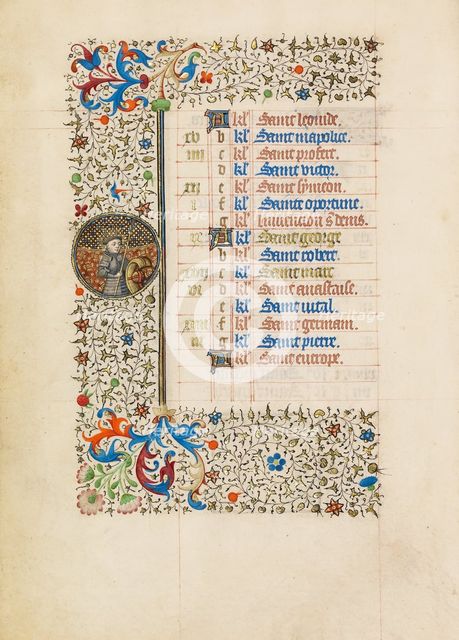 A kl Saint leonide.
xv b kl Saint mapolice.
iiii c kl Saint profect.
d kl Saint victor.
xii e kl Saint symeon.
i f kl Saincte oportune.
g kl Inuencion s denis.
ix A kl Saint george
b kl Saint robert.
xvii c kl Saint marc
vi d kl Saint anastaise.
e kl Saint vital.
xiiii f kl Saint germain.
iii g kl Saint pierre.
A kl Saint eutrope.
heritage